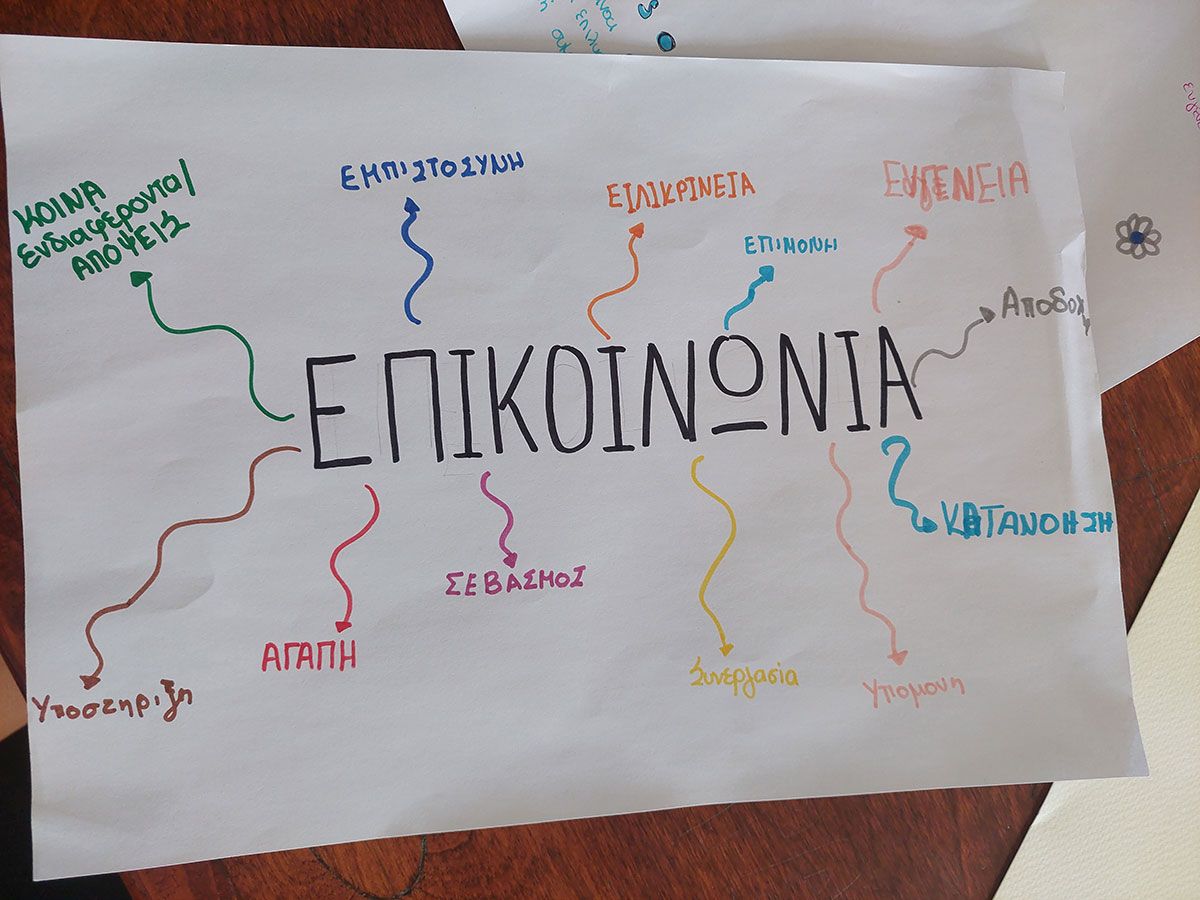 ΚΟΙΝΑ
ενδιαφέροντα/
ΑΠΟΨΕΙΣ
ΕΜΠΙΣΤΟΣΥΝΗ
ΕΙΛΙΚΡΙΝΕΙΑ
ΕΠΙΜΟΝΗ
ΕΥΓΕΝΕΙΑ
Αποδοχή
ΕΠΙΚΟΙΝΩΝΙΑ
ΚΑΤΑΝΟΗΣΗ
ΣΕΒΑΣΜΟΣ
ΑΓΑΠΗ
Υποστηριξη
Συνεργασία
Υπομονη